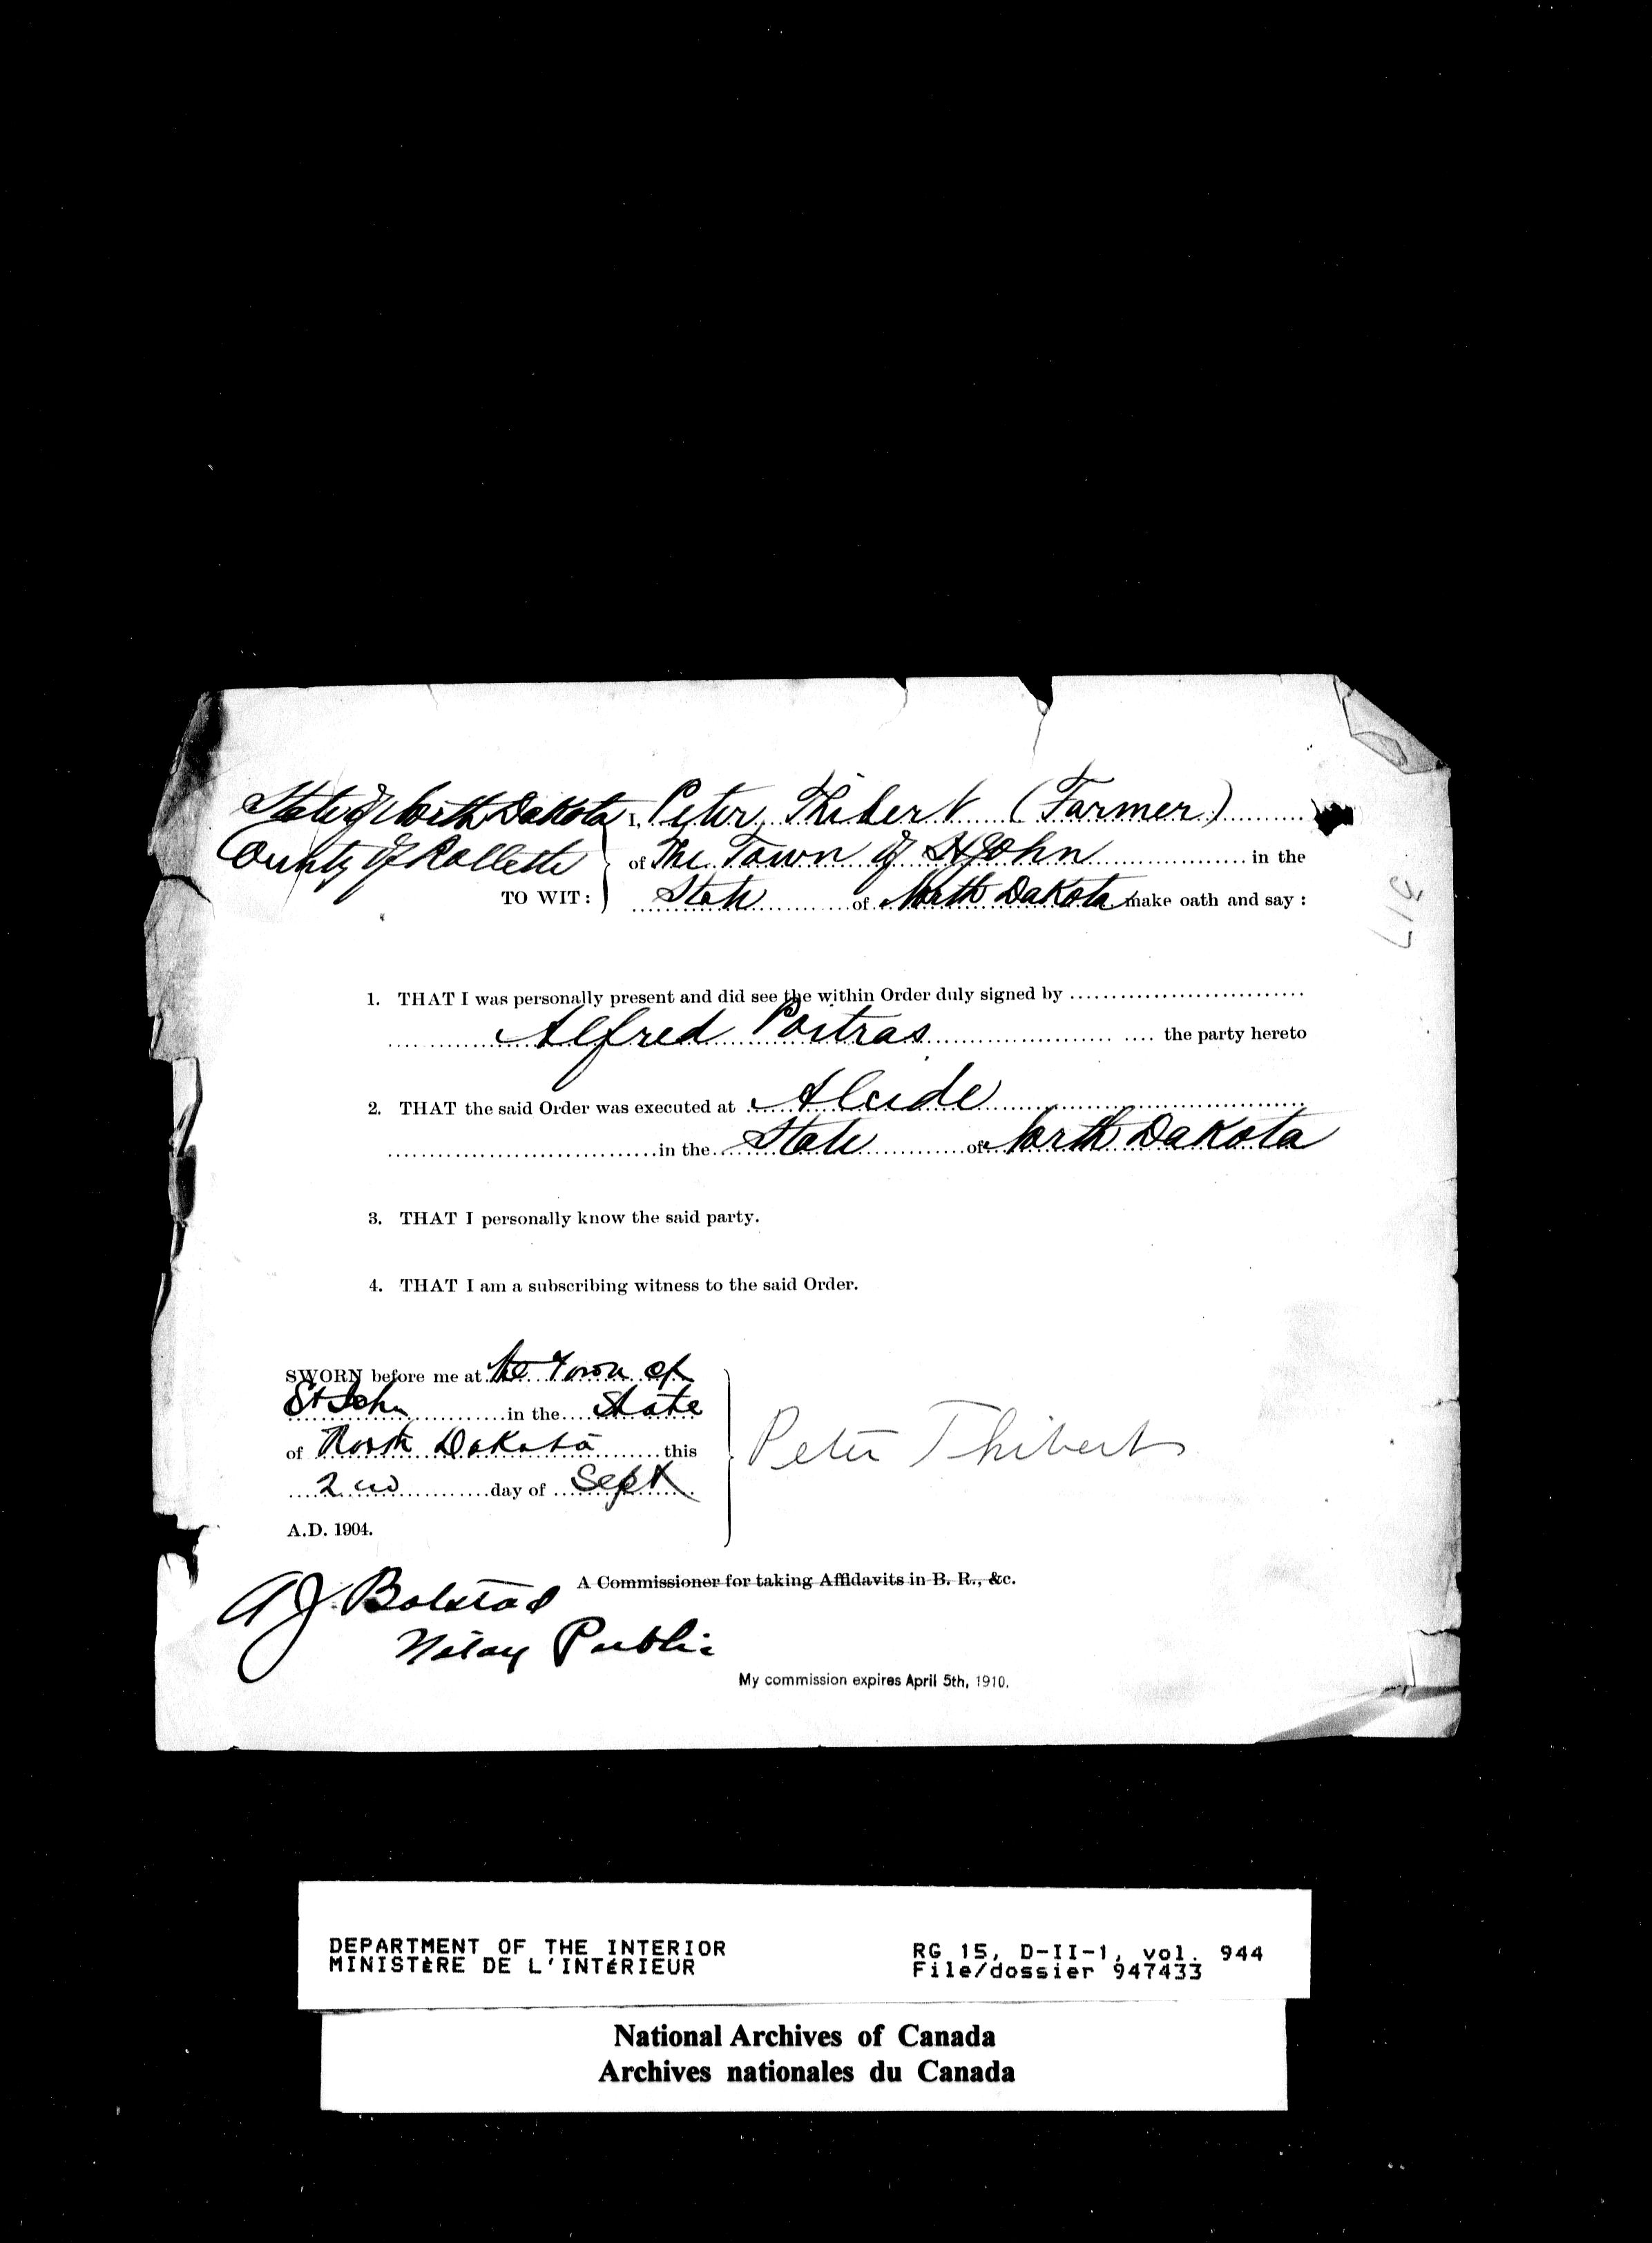 State of North Dakota } I, Peter Thibert (Farmer)
County of Rollette of The Town of St John in the
TO WIT: State of North Dakota make oath and say :
317
1. THAT I was personally present and did see the within Order duly signed by
Alfred Poitras the party hereto
2. THAT the said Order was executed at Alcide
in the State of North Dakota
3. THAT I personally know the said party.
4. THAT I am a subscribing witness to the said Order.
SWORN before me at the Town of
St John in the State
of North Dakota this
2nd day of Sept
A.D. 1904.
Peter Thibert
A Commissioner for taking Affidavits in B. R., &c.
A J Bolstad
Notary Public
My commission expires April 5th, 1910.
DEPARTMENT OF THE INTERIOR RG 15, D-II-1, vol. 944
MINISTÈRE DE L'INTÉRIEUR File/dossier 947433
National Archives of Canada
Archives nationales du Canada